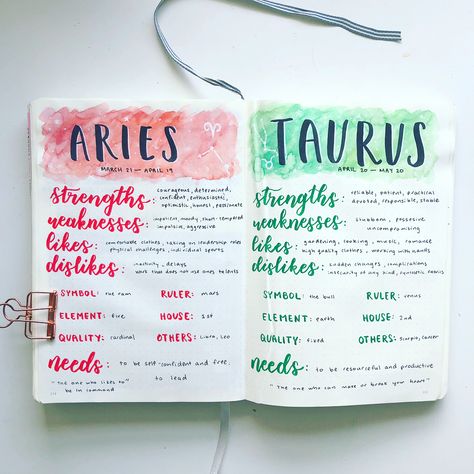 ARIES
MARCH 21 — APRIL 19
strengths: courageous, determined,
confident, enthusiastic,
optimistic, honest, passionate
weaknesses: impatient, moody, short-tempered
impulsive, aggressive
likes: comfortable clothes, taking on leadership roles
physical challenges, individual sports
dislikes: inactivity, delays
work that does not use one's talents
SYMBOL: the ram RULER: mars
ELEMENT: fire HOUSE: 1st
QUALITY: cardinal OTHERS: Libra, Leo
needs: to be self-confident and free;
to lead
"the one who likes to
be in command"
TAURUS
APRIL 20 — MAY 20
strengths: reliable, patient, practical
devoted, responsible, stable
weaknesses: stubborn, possesive
uncompromising
likes: gardening, cooking, music, romance
high quality clothes, working with hands
dislikes: sudden changes, complications
insecurity of any kind, synthetic fabrics
SYMBOL: the bull RULER: venus
ELEMENT: earth HOUSE: 2nd
QUALITY: fixed OTHERS: Scorpio, Cancer
needs: to be resourceful and productive
"the one who can make or break your heart"